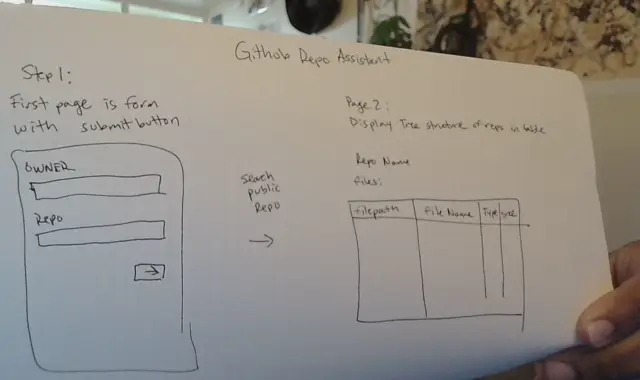 Github Repo Assistant
Step 1:
First page is form
with submit button
OWNER
Repo
→
search
public
Repo
→
Page 2:
Display Tree structure of repo in table
Repo Name
files:
filepath
file Name
Type
size